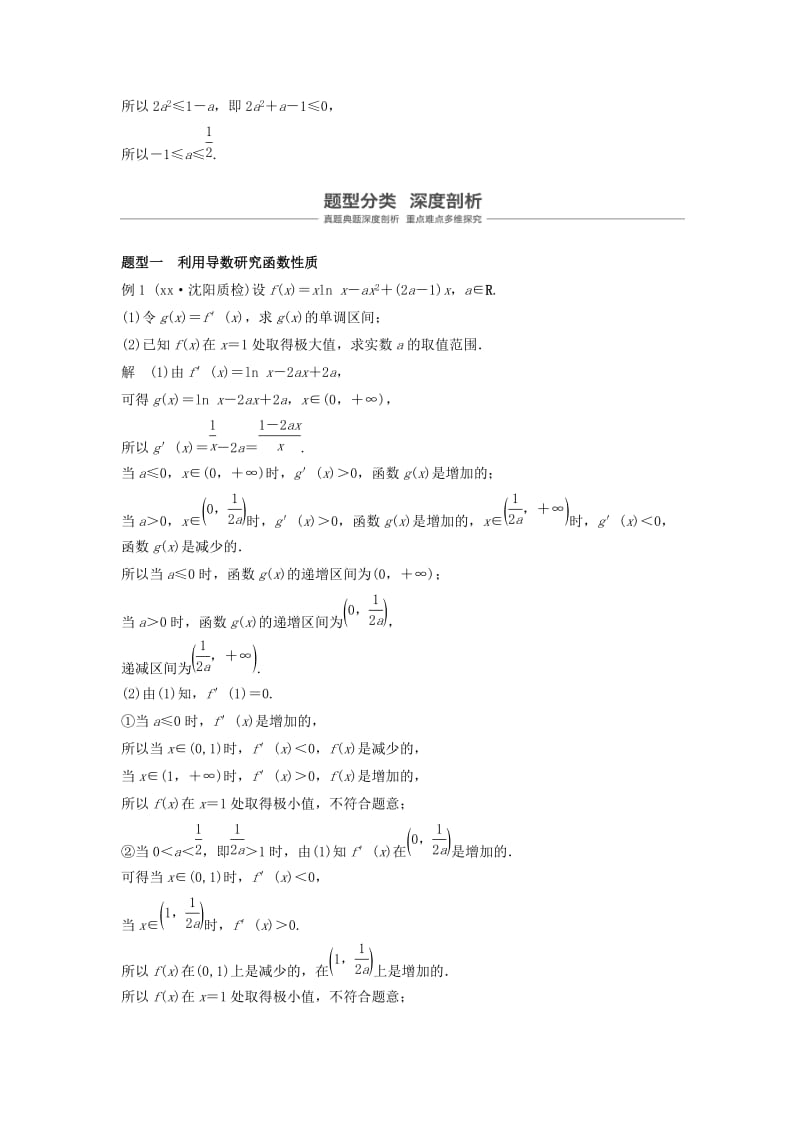 所以 2a²≤1－a，即 2a²＋a－1≤0，
所以－1≤a≤1/2.
题型分类 深度剖析
真题典题深度剖析 重点难点多维探究
题型一 利用导数研究函数性质
例 1 (xx·沈阳质检)设 f(x)＝xln x－ax²＋(2a－1)x，a∈R.
(1)令 g(x)＝f′(x)，求 g(x)的单调区间；
(2)已知 f(x)在 x＝1 处取得极大值，求实数 a 的取值范围．
解 (1)由 f′(x)＝ln x－2ax＋2a，
可得 g(x)＝ln x－2ax＋2a，x∈(0，＋∞)，
所以 g′(x)＝1/x－2a＝(1－2ax)/x.
当 a≤0，x∈(0，＋∞)时，g′(x)＞0，函数 g(x)是增加的；
当 a＞0，x∈(0，1/2a)时，g′(x)＞0，函数 g(x)是增加的，x∈(1/2a，＋∞)时，g′(x)＜0，
函数 g(x)是减少的．
所以当 a≤0 时，函数 g(x)的递增区间为(0，＋∞)；
当 a＞0 时，函数 g(x)的递增区间为(0，1/2a)，
递减区间为(1/2a，＋∞).
(2)由(1)知，f′(1)＝0.
①当 a≤0 时，f′(x)是增加的，
所以当 x∈(0,1)时，f′(x)＜0，f(x)是减少的，
当 x∈(1，＋∞)时，f′(x)＞0，f(x)是增加的，
所以 f(x)在 x＝1 处取得极小值，不符合题意；
②当 0＜a＜1/2，即1/2a＞1 时，由(1)知 f′(x)在(0，1/2a)是增加的．
可得当 x∈(0,1)时，f′(x)＜0，
当 x∈(1，1/2a)时，f′(x)＞0.
所以 f(x)在(0,1)上是减少的，在(1，1/2a)上是增加的．
所以 f(x)在 x＝1 处取得极小值，不符合题意；